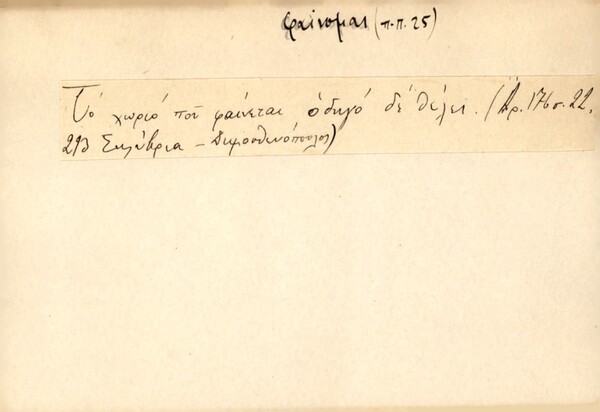 φαίνομαι (π.π. 25)
Τό χωριό ποῦ φαίνεται ὁδηγό δέ θέλει. (Ἀρ. 176 σ. 22,
293 Σηλύβρια – Δημοσθενόπουλος)